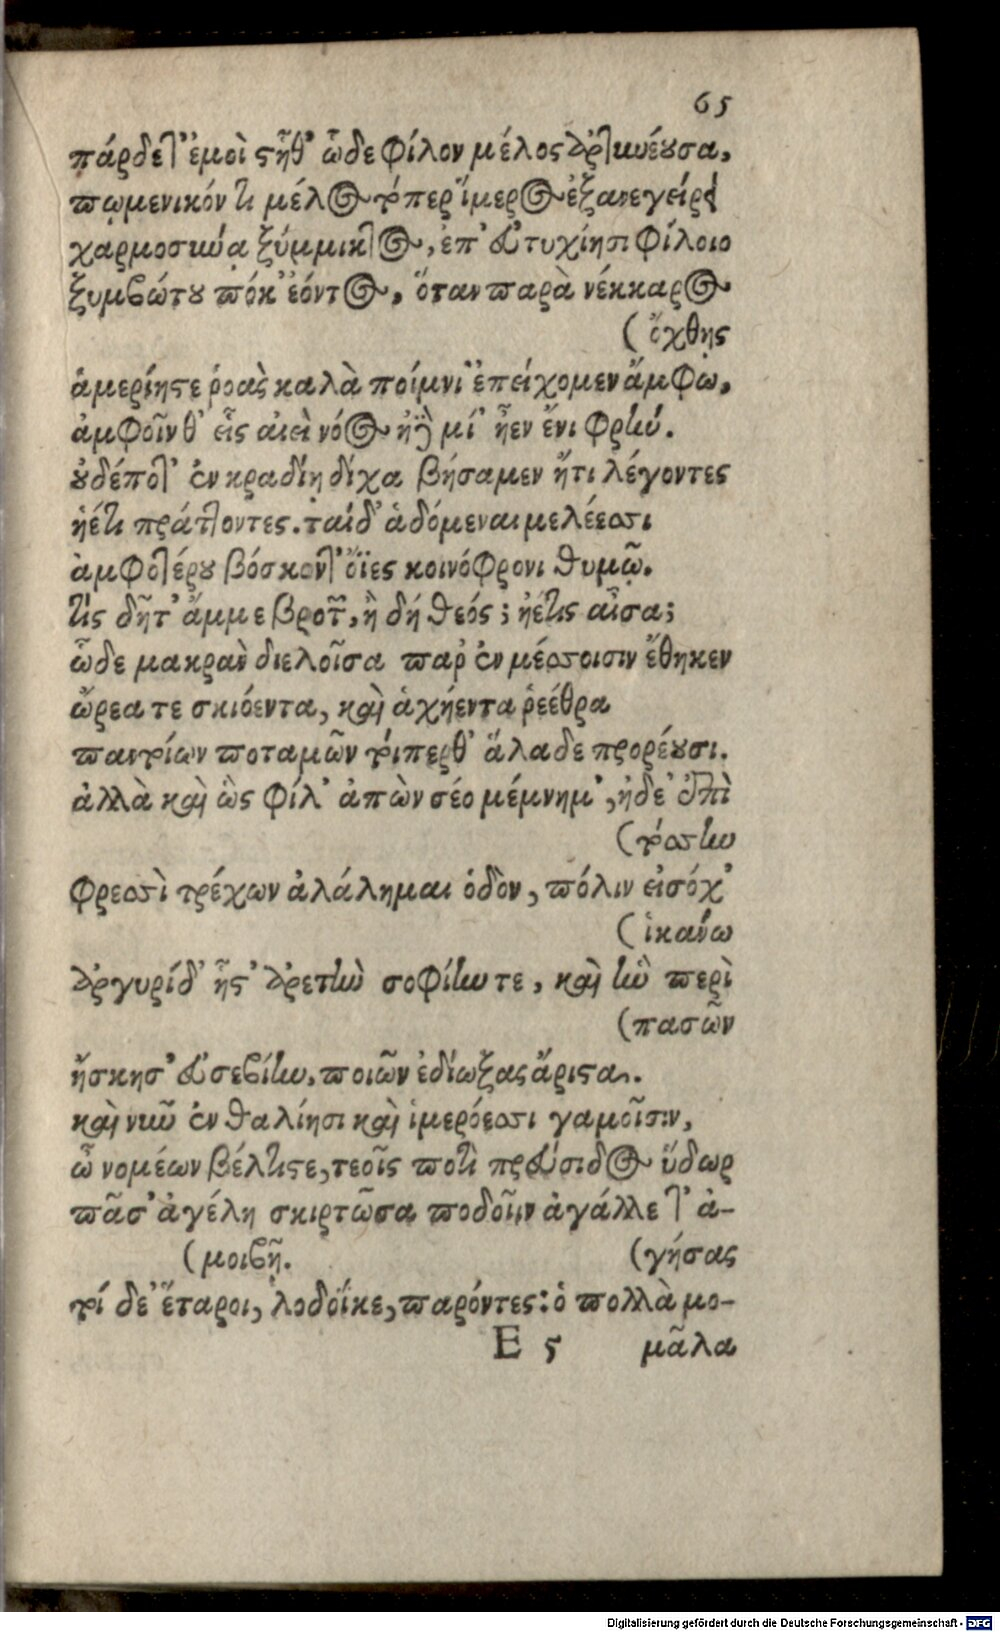 65
πάρδετ' ἐμοὶ στῆθ' ὧδε φίλον μέλος ἀρτικυέουσα,
πωμενικόν τι μέλος τόπερ ἵμερος ἐξανεγείρει
χαρμοσύνᾳ ξύμμικτος, ἐπ' εὐτυχίησι φίλοιο
ξυμβώτου πόκ' ἐόντος, ὅταν παρὰ νέκκαρος
(ὄχθης
ἁμερίης τε ῥοὰς καλὰ ποίμνι' ἐπείχομεν ἄμφω,
ἀμφοῖν θ' εἷς αἰεὶ νόος ἠδὲ μί' ἦεν ἔνι φρήν.
οὐδέποτ' ἐν κραδίῃ δίχα βήσαμεν ἤτι λέγοντες
ἠέτι πράττοντες. ταὶ δ' ἁδόμεναι μελέεσσι
ἀμφοτέρου βόσκοντ' ὄϊες κοινόφρονι θυμῷ.
τίς δῆτ' ἄμμε βροτῶν, ἢ δή θεός; ἠέτις αἶσα;
ὧδε μακρὰν διελοῖσα παρ' ἐν μέσσοισιν ἔθηκεν
ὤρεα τε σκιόεντα, καὶ ἀχήεντα ῥεέθρα
παντίων ποταμῶν τοίπερθ' ἅλαδε προρέουσι.
ἀλλὰ καὶ ὣς φίλ' ἀπὼν σέο μέμνημ', ἠδ' ἐπὶ
(τόσσην
φρεσσὶ τρέχων ἀλάλημαι ὁδὸν, πόλιν εἰσόχ'
(ἱκάνω
ἀργυρίδ' ἧς' ἀρετὴν σοφίην τε, καὶ ἣν περὶ
(πασῶν
ἤσκησ' εὐσεβίην, ποιῶν ἐδίωξας ἄριστα.
καὶ νῦν ἐν θαλίησι καὶ ἱμερόεσσι γαμοῖσιν,
ὦ νομέων βέλτιστε, τεοῖς ποτὶ πρεύσιδος ὕδωρ
πᾶσ' ἀγέλη σκιρτῶσα ποδοῖιν ἀγάλλετ' ἀ-
(μοιβῇ. (γήσας
τοί δε' ἕταροι, λοδοΐκε, παρόντες: ὁ πολλὰ μο-
E 5 μᾶλα
Digitalisierung gefördert durch die Deutsche Forschungsgemeinschaft - DFG